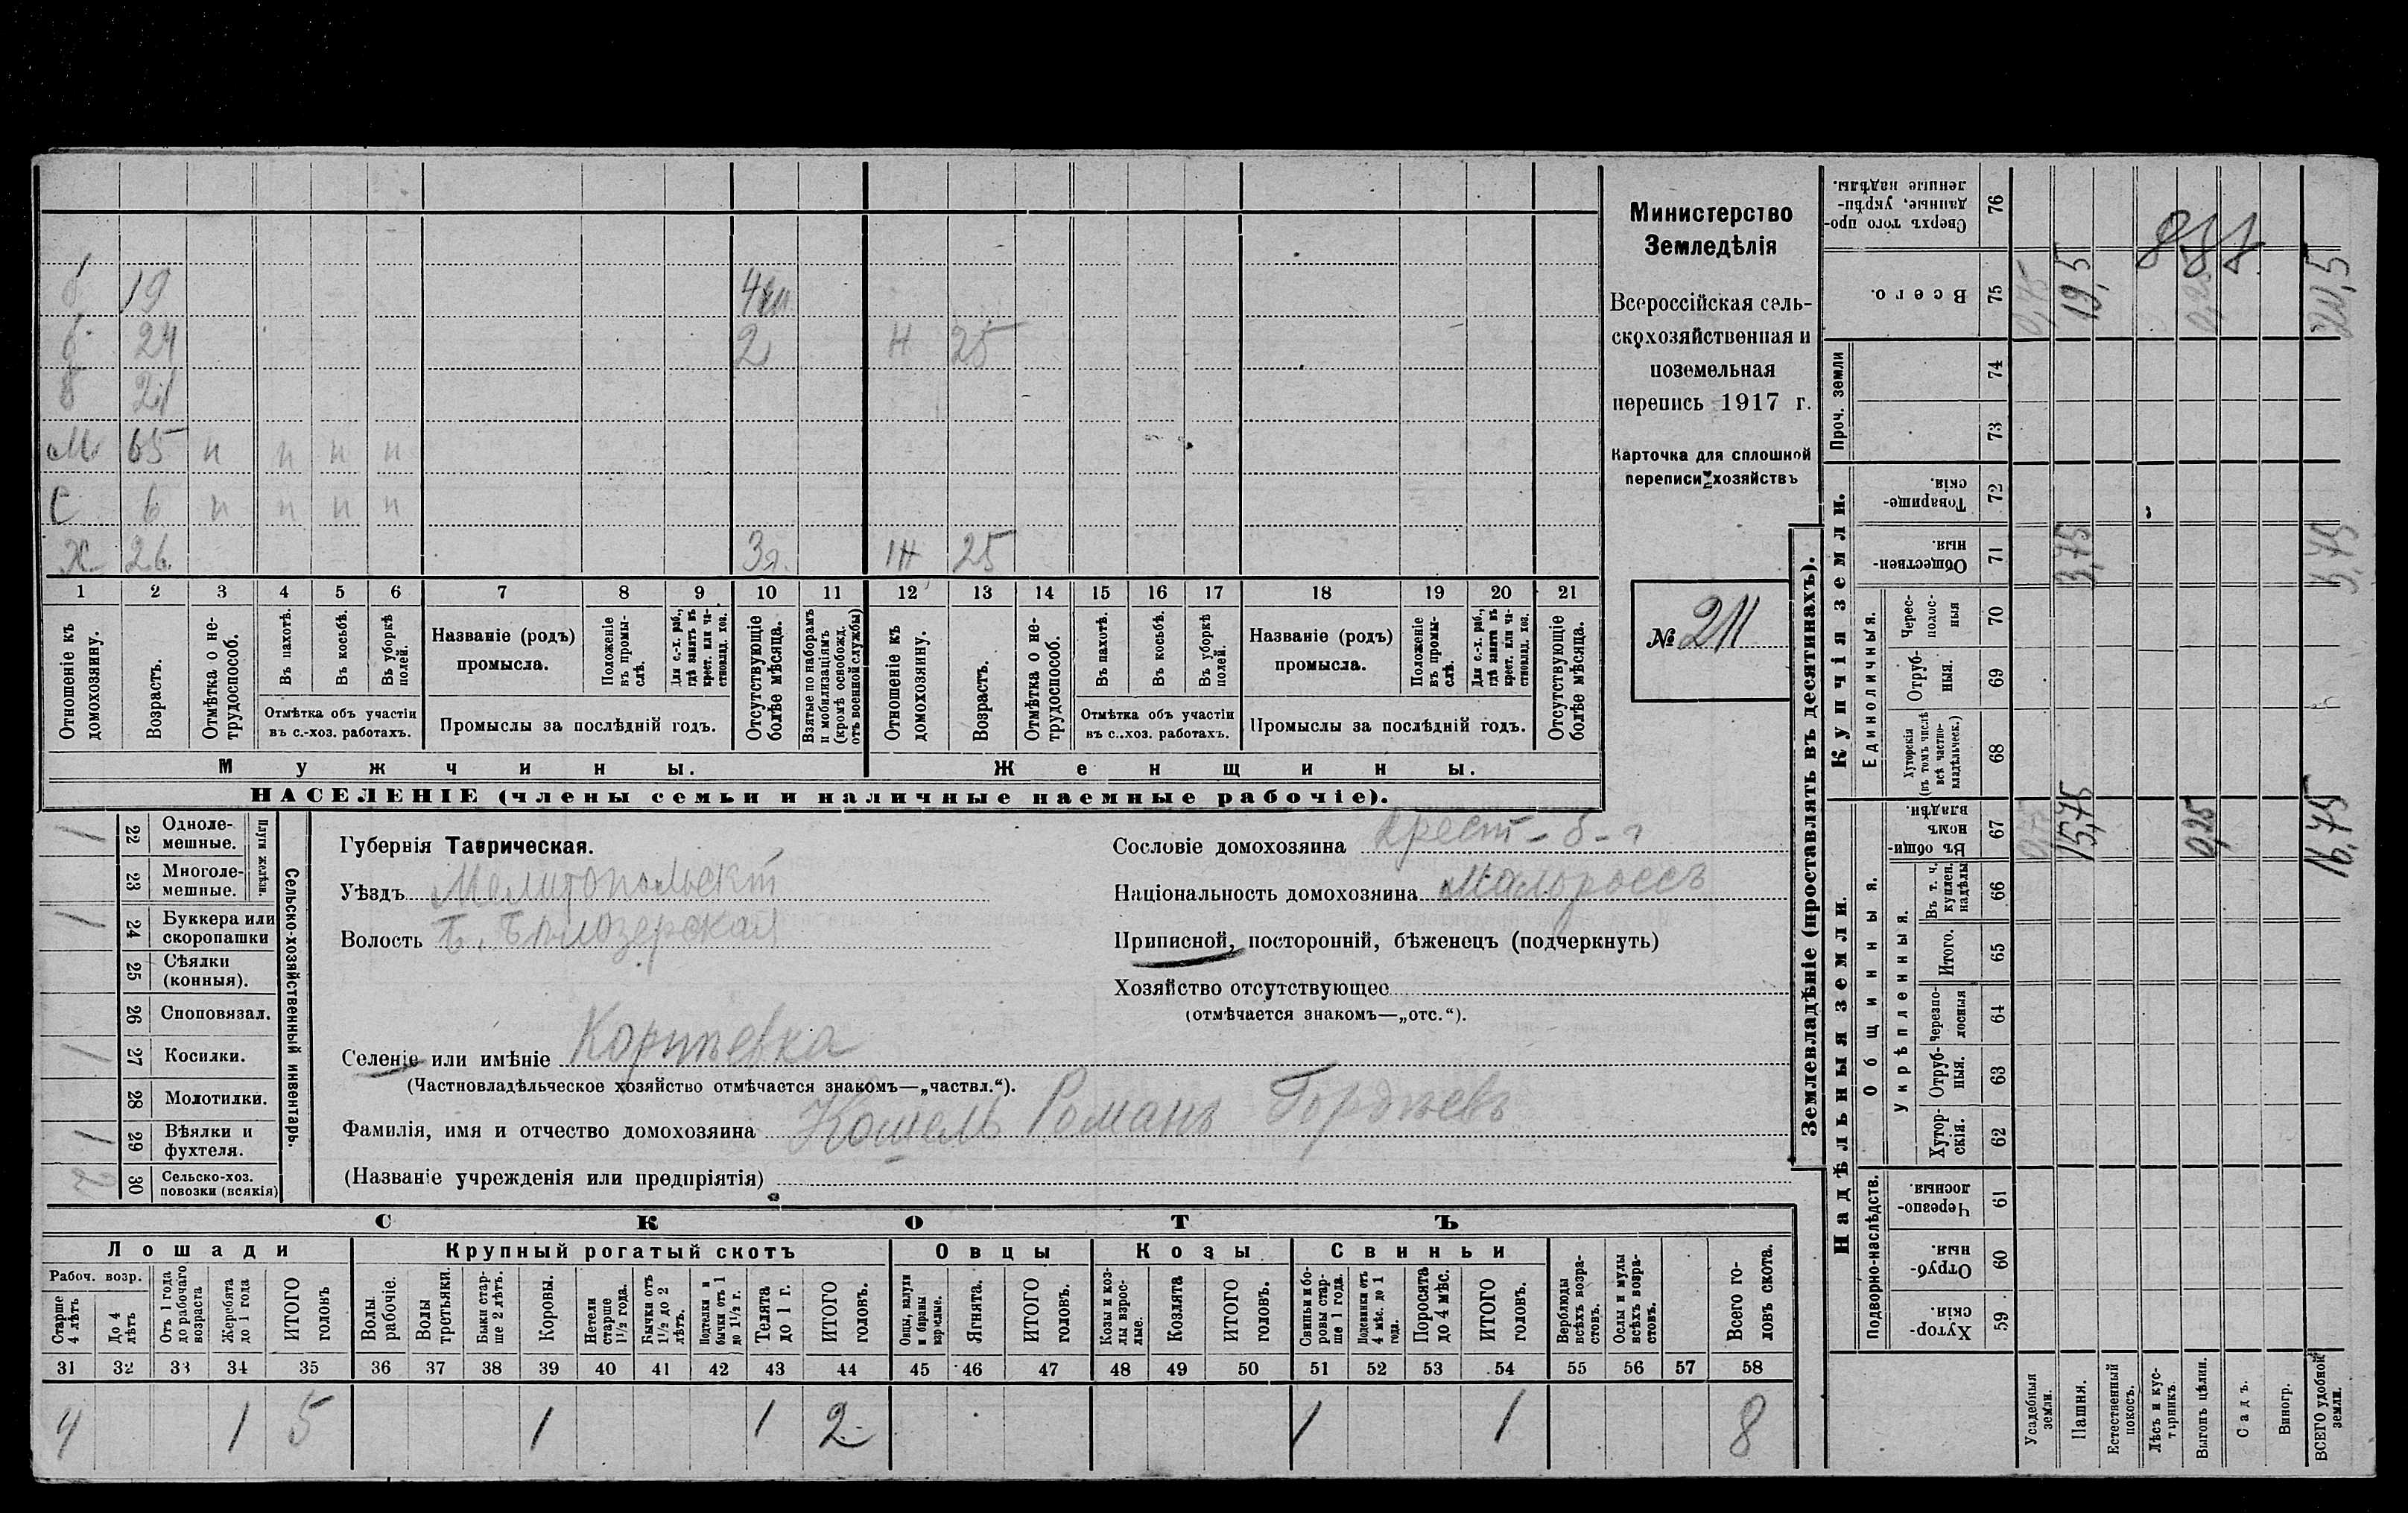 Министерство
Земледѣлія
Всероссійская сель-
скохозяйственная и
поземельная
перепись 1917 г.
Карточка для сплошной
переписи хозяйствъ
№ 211
19 4
24 2 Н 25
Б 21
М 65 н н н н
С 6 н н н н
Х 26 3 ІН 25
1 2 3 4 5 6 7 8 9 10 11 12 13 14 15 16 17 18 19 20 21
Отношеніе къ домохозяину.
Возрастъ.
Отмѣтка о не-трудоспособ.
Въ пахотѣ.
Въ косьбѣ.
Въ уборкѣ полей.
Отмѣтка объ участіи
въ с.-хоз. работахъ.
Названіе (родъ)
промысла.
Положеніе въ промы-слѣ.
Для с.-х. раб., гдѣ занятъ въ крест. или ча-стновлад. хоз.
Промыслы за послѣдній годъ.
Отсутствующіе болѣе мѣсяца.
Взятые по наборамъ и мобилизаціямъ (кромѣ освобожд. отъ военной службы)
Отношеніе къ домохозяину.
Возрастъ.
Отмѣтка о не-трудоспособ.
Въ пахотѣ.
Въ косьбѣ.
Въ уборкѣ полей.
Отмѣтка объ участіи
въ с.-хоз. работахъ.
Названіе (родъ)
промысла.
Положеніе въ промы-слѣ.
Для с.-х. раб., гдѣ занята въ крест. или ча-стновлад. хоз.
Промыслы за послѣдній годъ.
Отсутствующіе болѣе мѣсяца.
Мужчины. Женщины.
НАСЕЛЕНІЕ (члены семьи и наличные наемные рабочіе).
Сельско-хозяйственный инвентарь.
Плуги желѣзн.
1 22 Одноле-мешные.
23 Многоле-мешные.
1 24 Буккера или скоропашки
25 Сѣялки (конныя).
26 Споповязал.
1 27 Косилки.
28 Молотилки.
1 29 Вѣялки и фухтеля.
2 30 Сельско-хоз. повозки (всякія)
Губернія Таврическая.
Уѣздъ Мелитопольскій
Волость Б. Бѣлозерская
Селеніе или имѣніе
(Частновладѣльческое хозяйство отмѣчается знакомъ—„частвл.“).
Фамилія, имя и отчество домохозяина Кошель Романъ Гордѣевъ
(Названіе учрежденія или предпріятія)
Сословіе домохозяина Крест-
Національность домохозяина Малороссъ
Приписной, посторонній, бѣженецъ (подчеркнуть)
Хозяйство отсутствующее
(отмѣчается знакомъ—„отс.“).
СКОТЪ
Лошади Крупный рогатый скотъ Овцы Козы Свиньи
Рабоч. возр.
Старше 4 лѣтъ
До 4 лѣтъ
Отъ 1 года до рабочаго возраста
Жеребята до 1 года
ИТОГО головъ
Волы рабочіе.
Волы третьяки.
Быки стар-ше 2 лѣтъ.
Коровы.
Нетели старше 1½ года.
Бычки отъ 1½ до 2 лѣтъ.
Подтелки и бычки отъ 1 до 1½ г.
Телята до 1 г.
ИТОГО головъ.
Овцы, валухи и бараны взрослые.
Ягнята.
ИТОГО головъ.
Козы и коз-лы взрос-лые.
Козлята
ИТОГО головъ.
Свиньи и бо-ровы стар-ше 1 года.
Подсвинки отъ 4 мѣс. до 1 года.
Поросята до 4 мѣс.
ИТОГО головъ.
Верблюды всѣхъ возра-стовъ.
Ослы и мулы всѣхъ возра-стовъ.
Всего го-ловъ скота.
31 32 33 34 35 36 37 38 39 40 41 42 43 44 45 46 47 48 49 50 51 52 53 54 55 56 57 58
4 1 5 1 1 2 1 1 8
Землевладѣніе (проставлять въ десятинахъ).
Надѣльныя земли. Купчія земли. Проч. земли
Подворно-наслѣдств.
Общинныя.
Укрѣпленныя.
Единоличныя.
Хутор-скія. 59
Отруб-ныя. 60
Черезпо-лосныя. 61
Хутор-скія. 62
Отруб-ныя. 63
Черезпо-лосныя 64
Итого. 65
Въ т. ч. куплен. надѣлы 66
Въ общи-номъ владѣн. 67
Хуторскія (въ томъ числѣ всѣ частно-владѣльческ.) 68
Отруб-ныя. 69
Черес-полос-ныя 70
Обществен-ныя. 71
Товарище-скія. 72
73
74
Всего. 75
Сверхъ того про-данные, укрѣп-ленные надѣлы. 76
Усадебныя земли. 0,75
Пашня. 15,75 3,75 19,5
Естественный покосъ.
Лѣсъ и кус-тарникъ.
Выгонъ цѣлин. 0,25 0,25
Садъ.
Виногр.
ВСЕГО удобной земли. 16,75 3,75 20,5